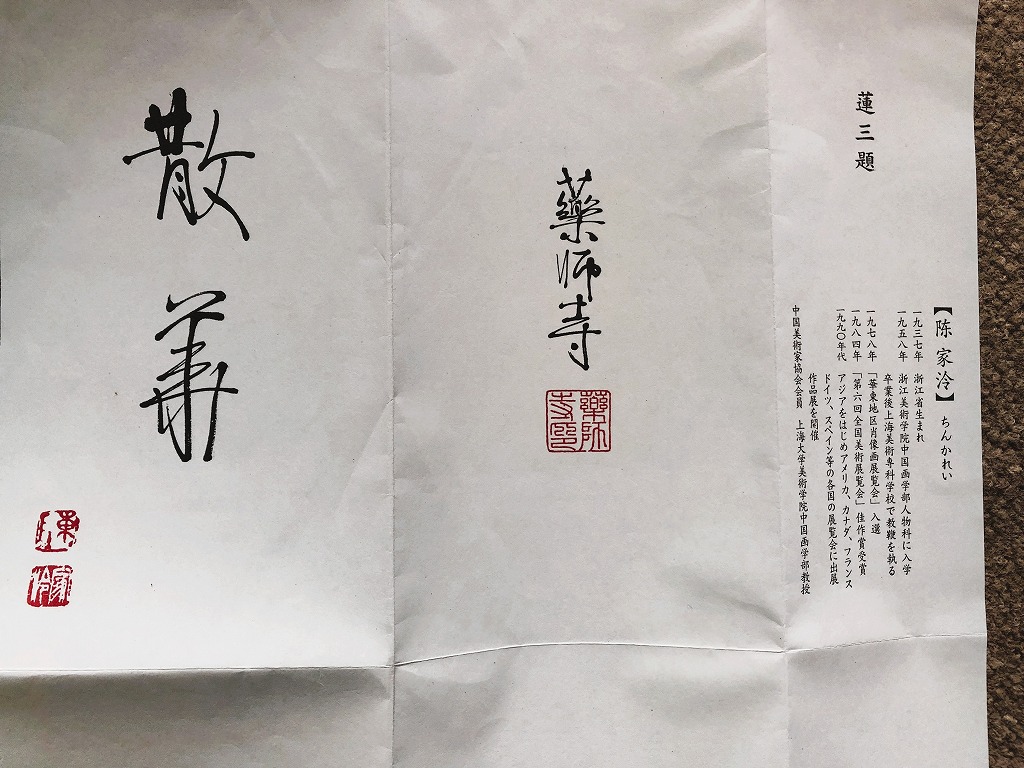 蓮三題
【陈家泠】ちんかれい
一九三七年 浙江省生まれ
一九五八年 浙江美術学院中国画学部人物科に入学
卒業後上海美術専科学校で教鞭を執る
一九七八年 「華東地区肖像画展覧会」入選
一九八四年 「第六回全国美術展覧会」佳作賞受賞
一九九〇年代 アジアをはじめアメリカ、カナダ、フランス
ドイツ、スペイン等の各国の展覧会に出展
作品展を開催
中国美術家協会会員 上海大学美術学院中国画学部教授
藥師寺
藥師寺印
散華
陳
家泠